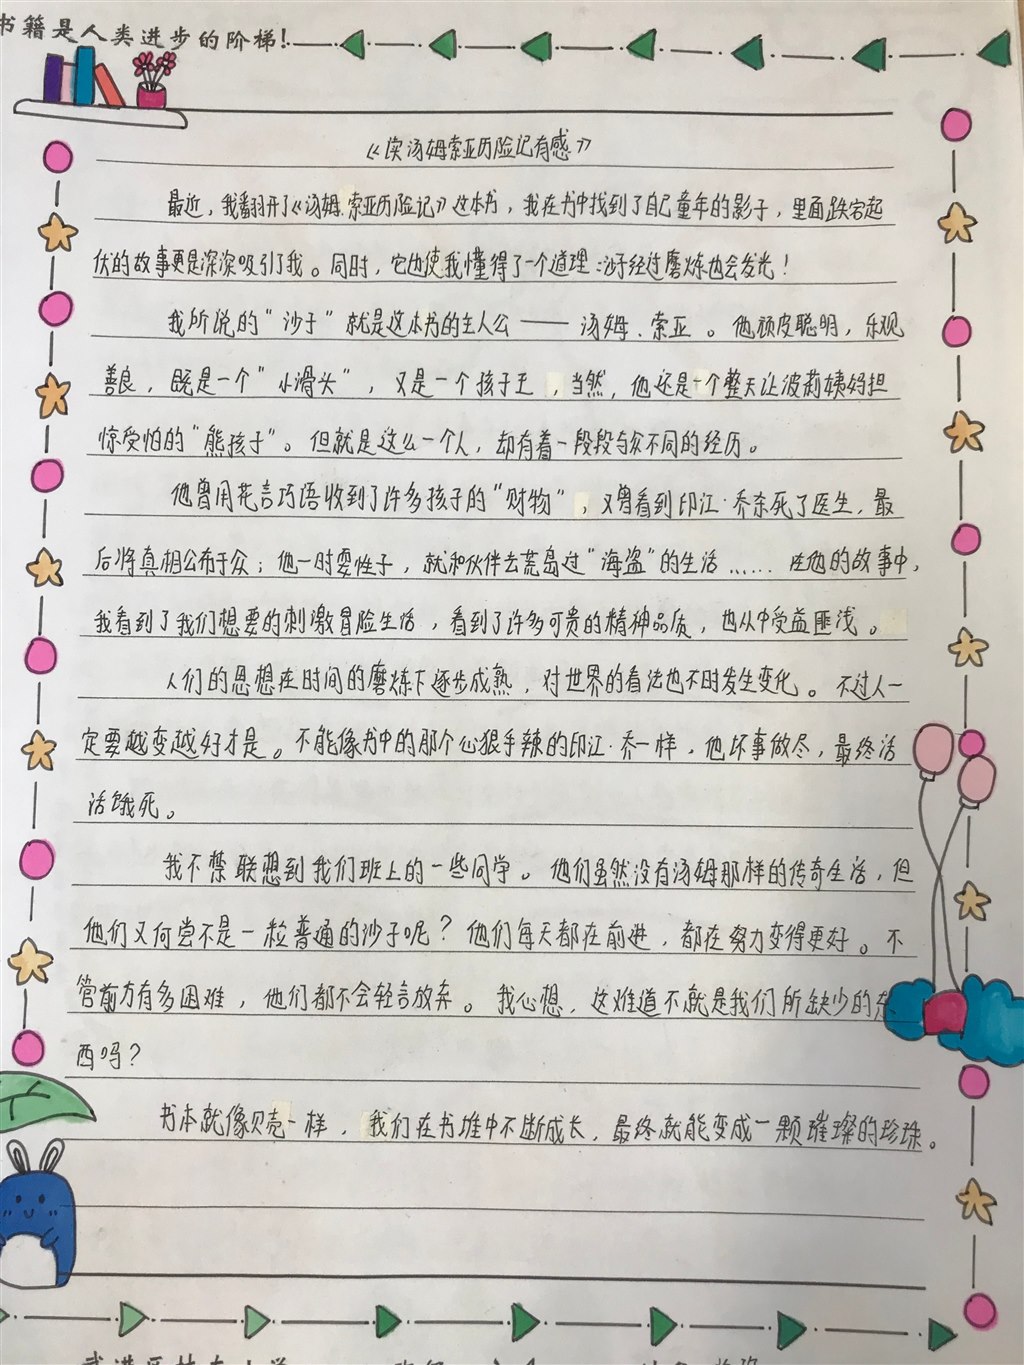 书籍是人类进步的阶梯！
《读汤姆索亚历险记有感》
最近，我翻开了《汤姆.索亚历险记》这本书，我在书中找到了自己童年的影子，里面跌宕起
伏的故事更是深深吸引了我。同时，它也使我懂得了一个道理：沙子经过磨炼也会发光！
我所说的“沙子”就是这本书的主人公——汤姆.索亚。他顽皮聪明，乐观
善良，既是一个“小滑头”，又是一个孩子王，当然，他还是一个整天让波莉姨妈担
惊受怕的“熊孩子”。但就是这么一个人，却有着一段段与众不同的经历。
他曾用花言巧语收到了许多孩子的“财物”，又曾看到印江·乔杀死了医生，最
后将真相公布于众；他一时耍性子，就和伙伴去荒岛过“海盗”的生活……在他的故事中，
我看到了我们想要的刺激冒险生活，看到了许多可贵的精神品质，也从中受益匪浅。
人们的思想在时间的磨炼下逐步成熟，对世界的看法也不时发生变化。不过人一
定要越变越好才是。不能像书中的那个心狠手辣的印江·乔一样，他坏事做尽，最终活
活饿死。
我不禁联想到我们班上的一些同学。他们虽然没有汤姆那样的传奇生活，但
他们又何尝不是一粒普通的沙子呢？他们每天都在前进，都在努力变得更好。不
管前方有多困难，他们都不会轻言放弃。我心想，这难道不就是我们所缺少的东
西吗？
书本就像贝壳一样，我们在书堆中不断成长，最终就能变成一颗璀璨的珍珠。